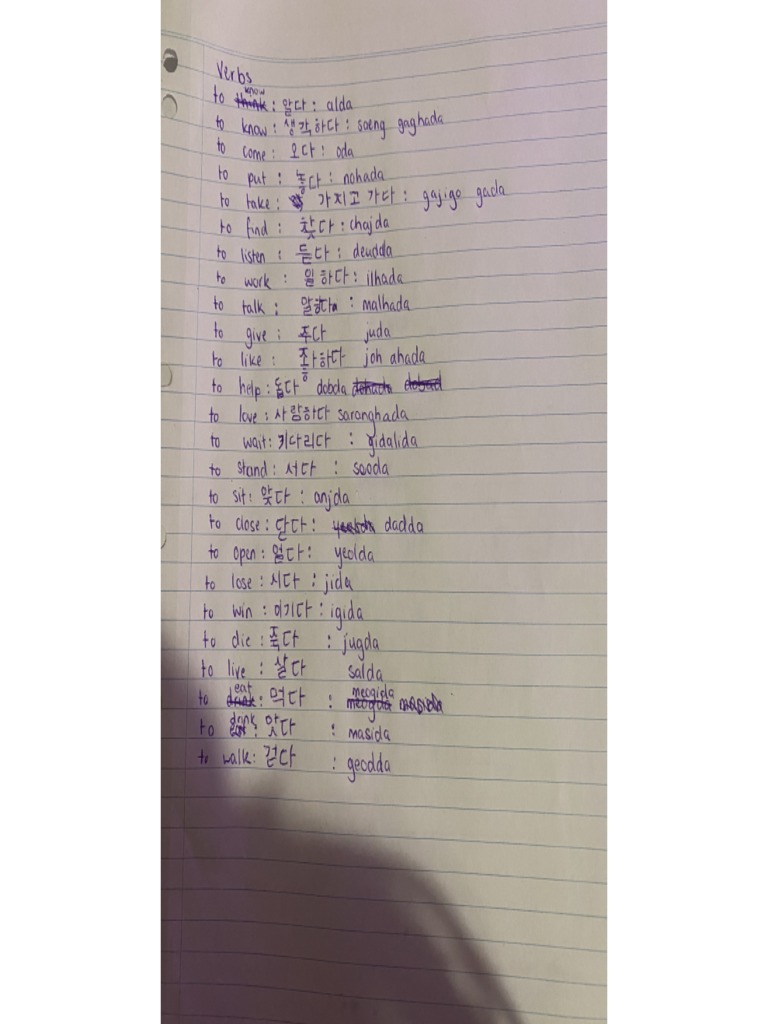 Verbs
to know : 알다 : alda
to know : 생각하다 : saeng gaghada
to come : 오다 : oda
to put : 놓다 : nohada
to take : 가지고 가다 : gajigo gada
to find : 찾다 : chajda
to listen : 듣다 : deudda
to work : 일하다 : ilhada
to talk : 말하다 : malhada
to give : 주다 juda
to like : 좋아하다 joh ahada
to help : 돕다 dobda
to love : 사랑하다 saranghada
to wait : 기다리다 : gidalida
to stand : 서다 : seoda
to sit : 앚다 : anjda
to close : 닫다 : dadda
to open : 열다 : yeolda
to lose : 지다 : jida
to win : 이기다 : igida
to die : 죽다 : jugda
to live : 살다 salda
to eat : 먹다 : meogida
to drink : 맛다 : masida
to walk : 걷다 : geodda